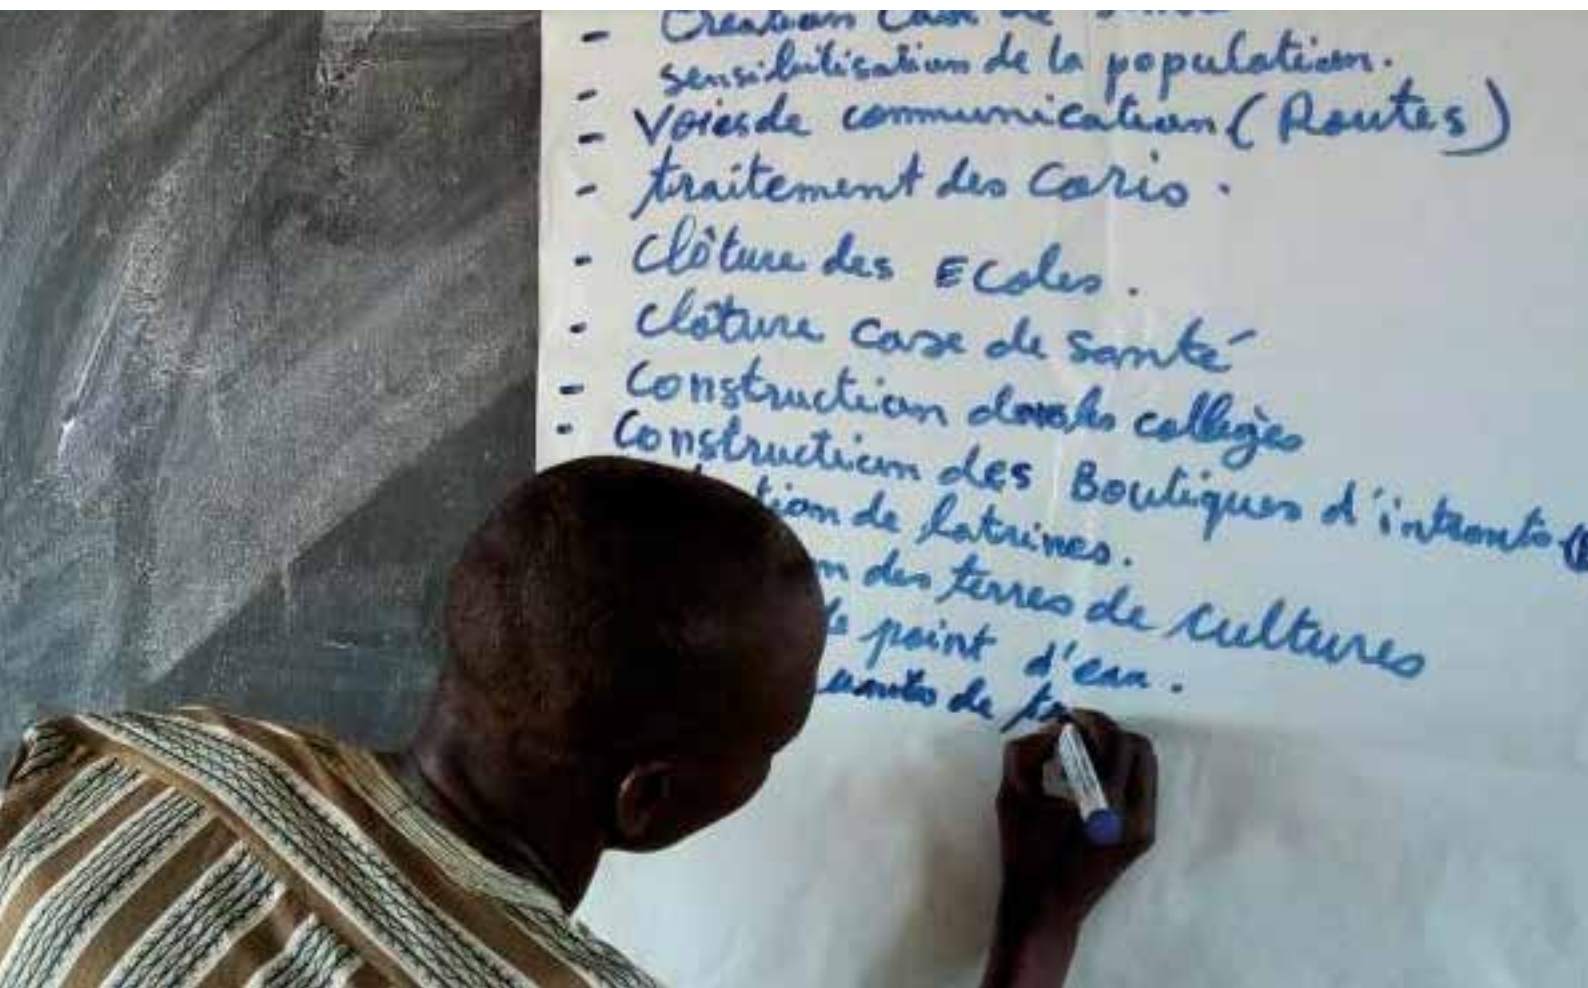 - Création Case de
- sensibilisation de la population.
- Voies de communication (Routes)
- traitement des Coris.
- Clôture des Ecoles.
- Clôture case de santé
- Construction collèges
- Construction des Boutiques d'intrants (
tion de latrines.
n des terres de cultures
point d'eau.
unités de tr